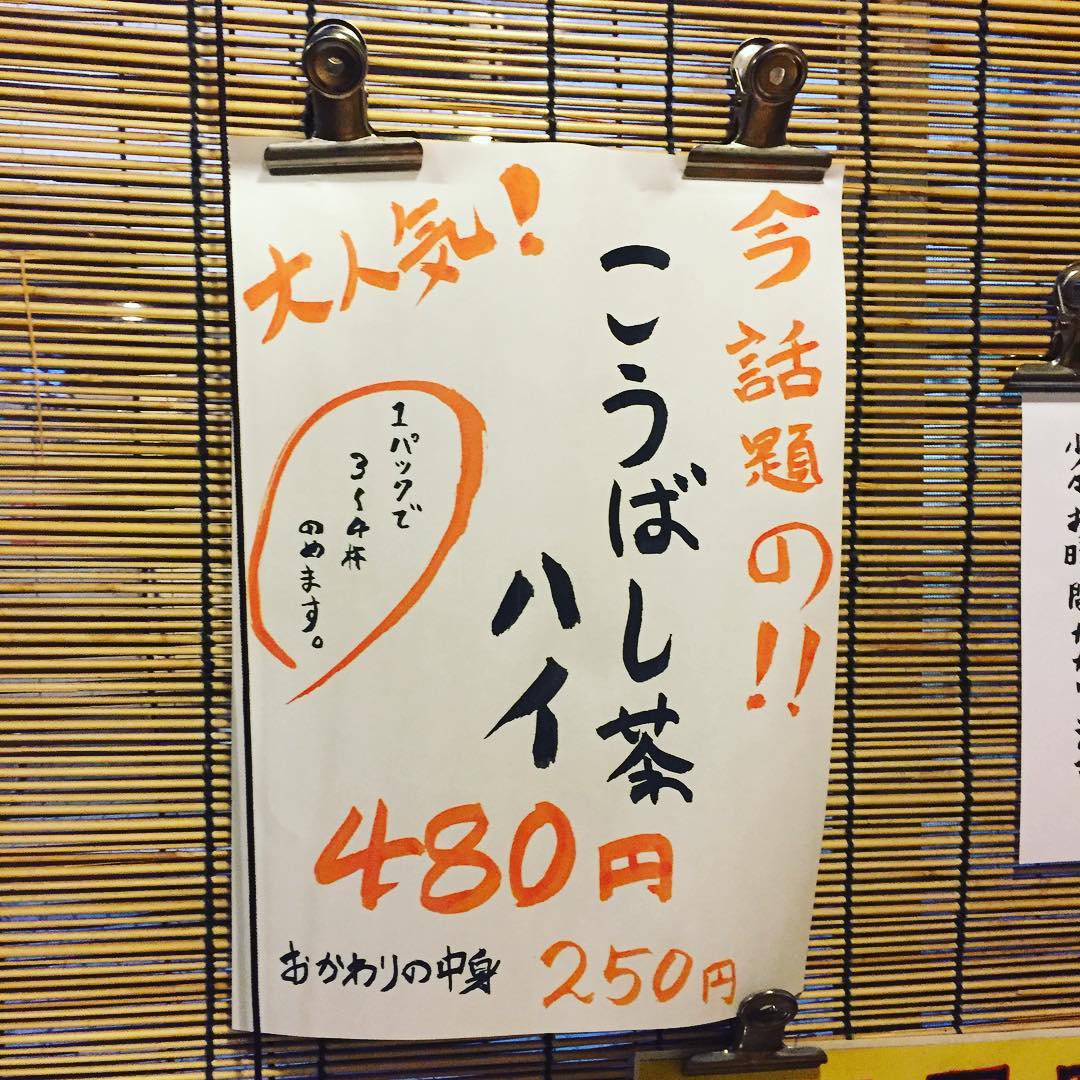 今話題の!!
こうばし茶
ハイ
大人気!
1パックで
3〜4杯
のめます。
480円
おかわりの中身 250円
少々お時間